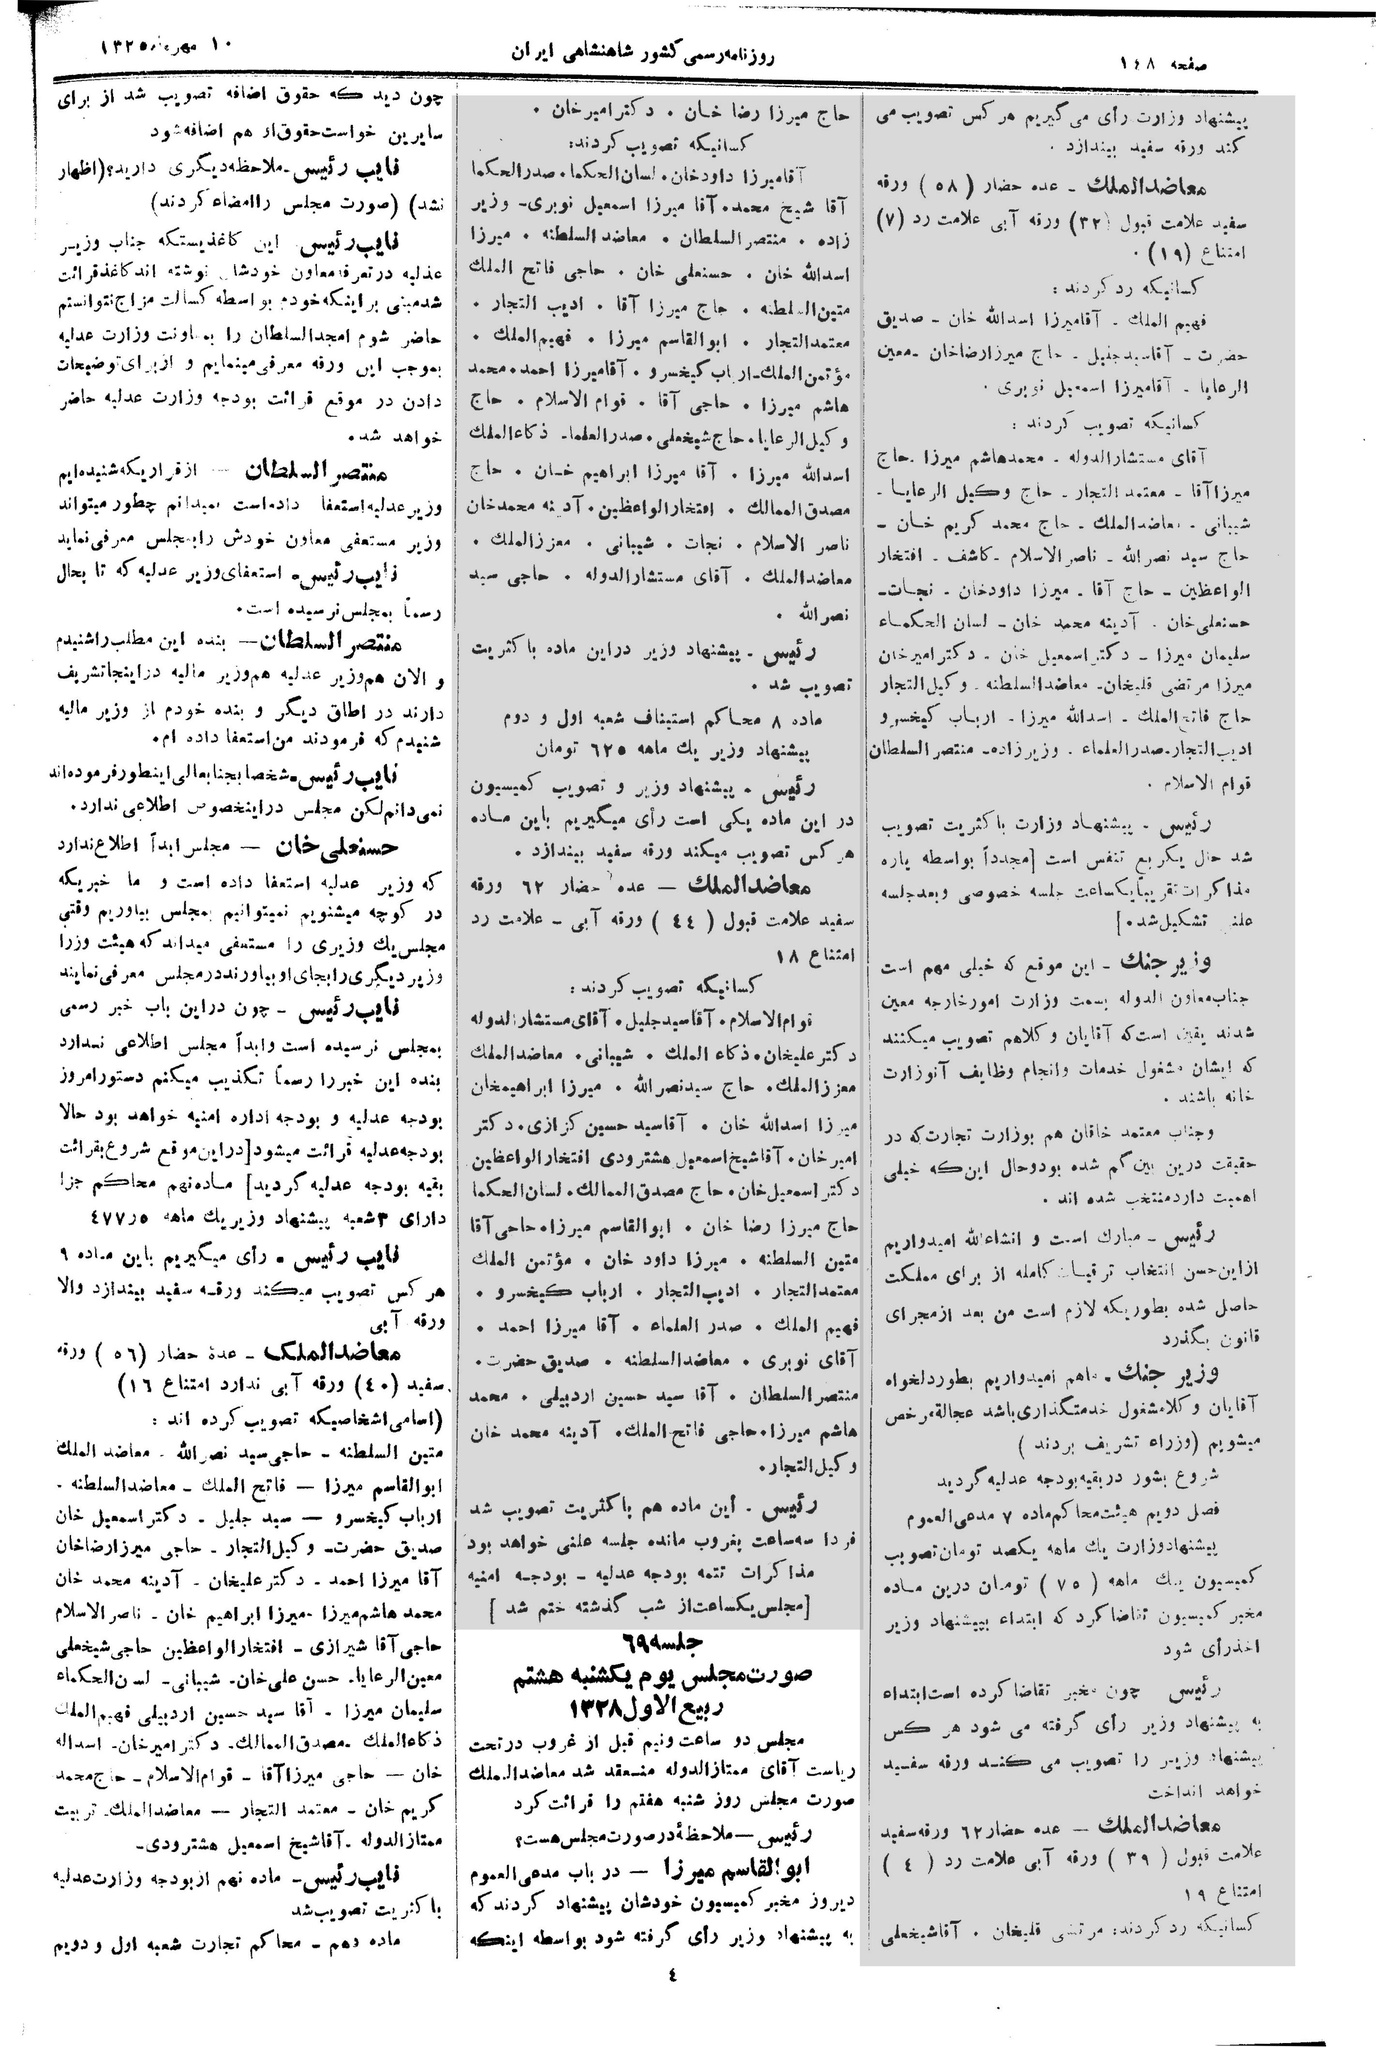 صفحه ۱۴۸
روزنامه رسمی کشور شاهنشاهی ایران
۱۰ مهرماه ۱۳۲۵
پیشنهاد وزارت رأی می گیریم هر کس تصویب می
کند ورقه سفید بیندازد .
معاضدالملك - عده حضار (۵۸) ورقه
سفید علامت قبول (۳۲) ورقه آبی علامت رد (۷)
امتناع (۱۹) .
کسانیکه رد کردند :
فهیم الملك . آقامیرزا اسدالله خان - صدیق
حضرت - آقاسیدجلیل . حاج میرزارضاخان - معین
الرعایا . آقامیرزا اسمعیل نوبری .
کسانیکه تصویب کردند :
آقای مستشارالدوله . محمدهاشم میرزا . حاج
میرزاآقا - معتمد التجار - حاج وکیل الرعایا -
شیبانی . معاضدالملك . حاج محمد کریم خان -
حاج سید نصرالله - ناصر الاسلام . کاشف . افتخار
الواعظین - حاج آقا . میرزا داودخان . نجات-
حسنعلی خان . آدینه محمد خان - لسان الحکماء
سلیمان میرزا - دکتر اسمعیل خان . دکتر امیرخان
میرزا مرتضی قلیخان- معاضد السلطنه . وکیل التجار
حاج فاتح الملك . اسدالله میرزا . ارباب کیخسرو
ادیب التجار- صدرالعلماء . وزیرزاده- منتصر السلطان
قوام الاسلام .
رئیس - پیشنهاد وزارت باکثریت تصویب
شد حال یکربع تنفس است [مجدداً بواسطه پاره
مذاکرات تقریباً یکساعت جلسه خصوصی و بعد جلسه
علنی تشکیل شد . ]
وزیر جنك - این موقع که خیلی مهم است
جناب معاون الدوله بسمت وزارت امورخارجه معین
شدند یقین است که آقایان وکلاهم تصویب میکنند
که ایشان مشغول خدمات وانجام وظایف آنوزارت
خانه باشند .
وجناب معتمد خاقان هم بوزارت تجارت که در
حقیقت درین بین گم شده بود وحال این که خیلی
اهمیت دارد منتخب شده اند .
رئیس - مبارك است و انشاءالله امیدواریم
ازاین حسن انتخاب ترقیات کامله از برای مملکت
حاصل شده بطوریکه لازم است من بعد از مجرای
قانون بگذرد
وزیر جنك - ماهم امیدواریم بطوردلخواه
آقایان وکلا مشغول خدمتگذاری باشد عجالة مرخص
میشویم (وزراء تشریف بردند )
شروع بشور در بقیه بودجه عدلیه گردید
فصل دویم هیئت محاکم ماده ۷ مدعی العموم
پیشنهاد وزارت یك ماهه یکصد تومان تصویب
کمیسیون یك ماهه (۷۵) تومان درین ماده
مخبر کمیسیون تقاضا کرد که ابتداء بپیشنهاد وزیر
اخذرأی شود
رئیس چون مخبر تقاضا کرده است ابتداء
به پیشنهاد وزیر رأی گرفته می شود هر کس
پیشنهاد وزیر را تصویب می کند ورقه سفید
خواهد انداخت
معاضدالملك - عده حضار ۶۲ ورقه سفید
علامت قبول (۳۹) ورقه آبی علامت رد (۴)
امتناع ۱۹
کسانیکه رد کردند: مرتضی قلیخان . آقاشیخعلی
حاج میرزا رضا خان . دکتر امیرخان .
کسانیکه تصویب کردند:
آقامیرزا داودخان . لسان الحکما . صدرالحکما
آقا شیخ محمد . آقا میرزا اسمعیل نوبری - وزیر
زاده . منتصر السلطان . معاضد السلطنه . میرزا
اسدالله خان . حسنعلی خان . حاجی فاتح الملك
متین السلطنه . حاج میرزا آقا . ادیب التجار .
معتمدالتجار . ابوالقاسم میرزا . فهیم الملك .
مؤتمن الملك- ارباب کیخسرو . آقامیرزا احمد . محمد
هاشم میرزا . حاجی آقا . قوام الاسلام . حاج
وکیل الرعایا . حاج شیخعلی . صدرالعلما- ذکاءالملك
اسدالله میرزا . آقا میرزا ابراهیم خان . حاج
مصدق الممالك . افتخارالواعظین . آدینه محمدخان
ناصر الاسلام . نجات . شیبانی . معززالملك .
معاضدالملك . آقای مستشارالدوله . حاجی سید
نصرالله .
رئیس - پیشنهاد وزیر دراین ماده باکثریت
تصویب شد .
ماده ۸ محاکم استیناف شعبه اول و دوم
پیشنهاد وزیر یك ماهه ۶۲۵ تومان
رئیس - پیشنهاد وزیر و تصویب کمیسیون
در این ماده یکی است رأی میگیریم باین ماده
هر کس تصویب میکند ورقه سفید بیندازد .
معاضدالملك - عده حضار ۶۲ ورقه
سفید علامت قبول (۴۴) ورقه آبی - علامت رد
امتناع ۱۸
کسانیکه تصویب کردند :
قوام الاسلام . آقاسیدجلیل . آقای مستشارالدوله
دکتر علیخان . ذکاء الملك . شیبانی . معاضدالملك
معززالملك . حاج سیدنصرالله . میرزا ابراهیمخان
میرزا اسدالله خان . آقاسید حسین کزازی . دکتر
امیرخان . آقاشیخ اسمعیل هشترودی افتخارالواعظین
دکتر اسمعیل خان . حاج مصدق الممالك . لسان الحکما
حاج میرزا رضا خان . ابوالقاسم میرزا . حاجی آقا
متین السلطنه . میرزا داود خان . مؤتمن الملك
معتمدالتجار . ادیب التجار . ارباب کیخسرو .
فهیم الملك . صدر العلماء . آقا میرزا احمد .
آقای نوبری . معاضدالسلطنه . صدیق حضرت .
منتصر السلطان . آقا سید حسین اردبیلی . محمد
هاشم میرزا . حاجی فاتح الملك . آدینه محمد خان
وکیل التجار .
رئیس - این ماده هم باکثریت تصویب شد
فردا سه ساعت بغروب مانده جلسه علنی خواهد بود
مذاکرات تتمه بودجه عدلیه - بودجه امنیه
[مجلس یکساعت از شب گذشته ختم شد ]
جلسه ۶۹
صورت مجلس یوم یکشنبه هشتم
ربیع الاول ۱۳۲۸
مجلس دو ساعت ونیم قبل از غروب در تحت
ریاست آقای ممتازالدوله منعقد شد معاضدالملك
صورت مجلس روز شنبه هفتم را قرائت کرد
رئیس - ملاحظهٔ در صورت مجلس هست؟
ابوالقاسم میرزا - در باب مدعی العموم
دیروز مخبر کمیسیون خودشان پیشنهاد کردند که
به پیشنهاد وزیر رأی گرفته شود بواسطه اینکه
چون دید که حقوق اضافه تصویب شد از برای
سایرین خواست حقوق از هم اضافه شود
نایب رئیس - ملاحظه دیگری دارید؟ (اظهار
نشد) (صورت مجلس را امضاء کردند)
نایب رئیس این کاغذیستکه جناب وزیر
عدلیه در تعرفه معاون خودشان نوشته اند کاغذ قرائت
شد مبنی براینکه خودم بواسطه کسالت مزاج نتوانستم
حاضر شوم امجدالسلطان را بمعاونت وزارت عدلیه
بموجب این ورقه معرفی مینمایم و از برای توضیحات
دادن در موقع قرائت بودجه وزارت عدلیه حاضر
خواهد شد .
منتصر السلطان - از قراریکه شنیده ایم
وزیر عدلیه استعفا داده است نمیدانم چطور میتواند
وزیر مستعفی معاون خودش را بمجلس معرفی نماید
نایب رئیس - استعفای وزیر عدلیه که تا بحال
رسماً بمجلس نرسیده است .
منتصر السلطان - بنده این مطلب را شنیدم
و الان هم وزیر عدلیه هم وزیر مالیه در اینجا تشریف
دارند در اطاق دیگر و بنده خودم از وزیر مالیه
شنیدم که فرمودند من استعفا داده ام .
نایب رئیس - شخصا بجنابعالی اینطور فرموده اند
نمی دانم لکن مجلس دراینخصوص اطلاعی ندارد .
حسنعلی خان - مجلس ابداً اطلاع ندارد
که وزیر عدلیه استعفا داده است و ما خبریکه
در کوچه میشنویم نمیتوانیم بمجلس بیاوریم وقتی
مجلس یك وزیری را مستعفی میداند که هیئت وزرا
وزیر دیگری را بجای او بیاورند در مجلس معرفی نمایند
نایب رئیس - چون دراین باب خبر رسمی
بمجلس نرسیده است وابداً مجلس اطلاعی ندارد
بنده این خبر را رسماً تکذیب میکنم دستور امروز
بودجه عدلیه و بودجه اداره امنیه خواهد بود حالا
بودجه عدلیه قرائت میشود [دراین موقع شروع بقرائت
بقیه بودجه عدلیه گردید] ماده نهم محاکم جزا
دارای ۳ شعبه پیشنهاد وزیر یك ماهه ۴۷۷٫۵
نایب رئیس - رأی میگیریم باین ماده ۹
هر کس تصویب میکند ورقه سفید بیندازد والا
ورقه آبی
معاضدالملك - عدهٔ حضار (۵۶) ورقه
سفید (۴۰) ورقه آبی ندارد امتناع ۱۶)
(اسامی اشخاصیکه تصویب کرده اند :
متین السلطنه - حاجی سید نصرالله . معاضد الملك
ابوالقاسم میرزا - فاتح الملك - معاضدالسلطنه .
ارباب کیخسرو - سید جلیل . دکتر اسمعیل خان
صدیق حضرت - وکیل التجار . حاجی میرزارضاخان
آقا میرزا احمد . دکتر علیخان . آدینه محمد خان
محمد هاشم میرزا - میرزا ابراهیم خان . ناصر الاسلام
حاجی آقا شیرازی - افتخارالواعظین حاجی شیخعلی
معین الرعایا- حسن علی خان- شیبانی- لسان الحکماء
سلیمان میرزا - آقا سید حسین اردبیلی فهیم الملك
ذکاءالملك - مصدق الممالك- دکتر امیرخان- اسداله
خان - حاجی میرزاآقا - قوام الاسلام - حاج محمد
کریم خان - معتمد التجار - معاضدالملك- تربیت
ممتازالدوله - آقاشیخ اسمعیل هشترودی-
نایب رئیس - ماده نهم از بودجه وزارت عدلیه
باکثریت تصویب شد
ماده دهم - محاکم تجارت شعبه اول و دویم
۴